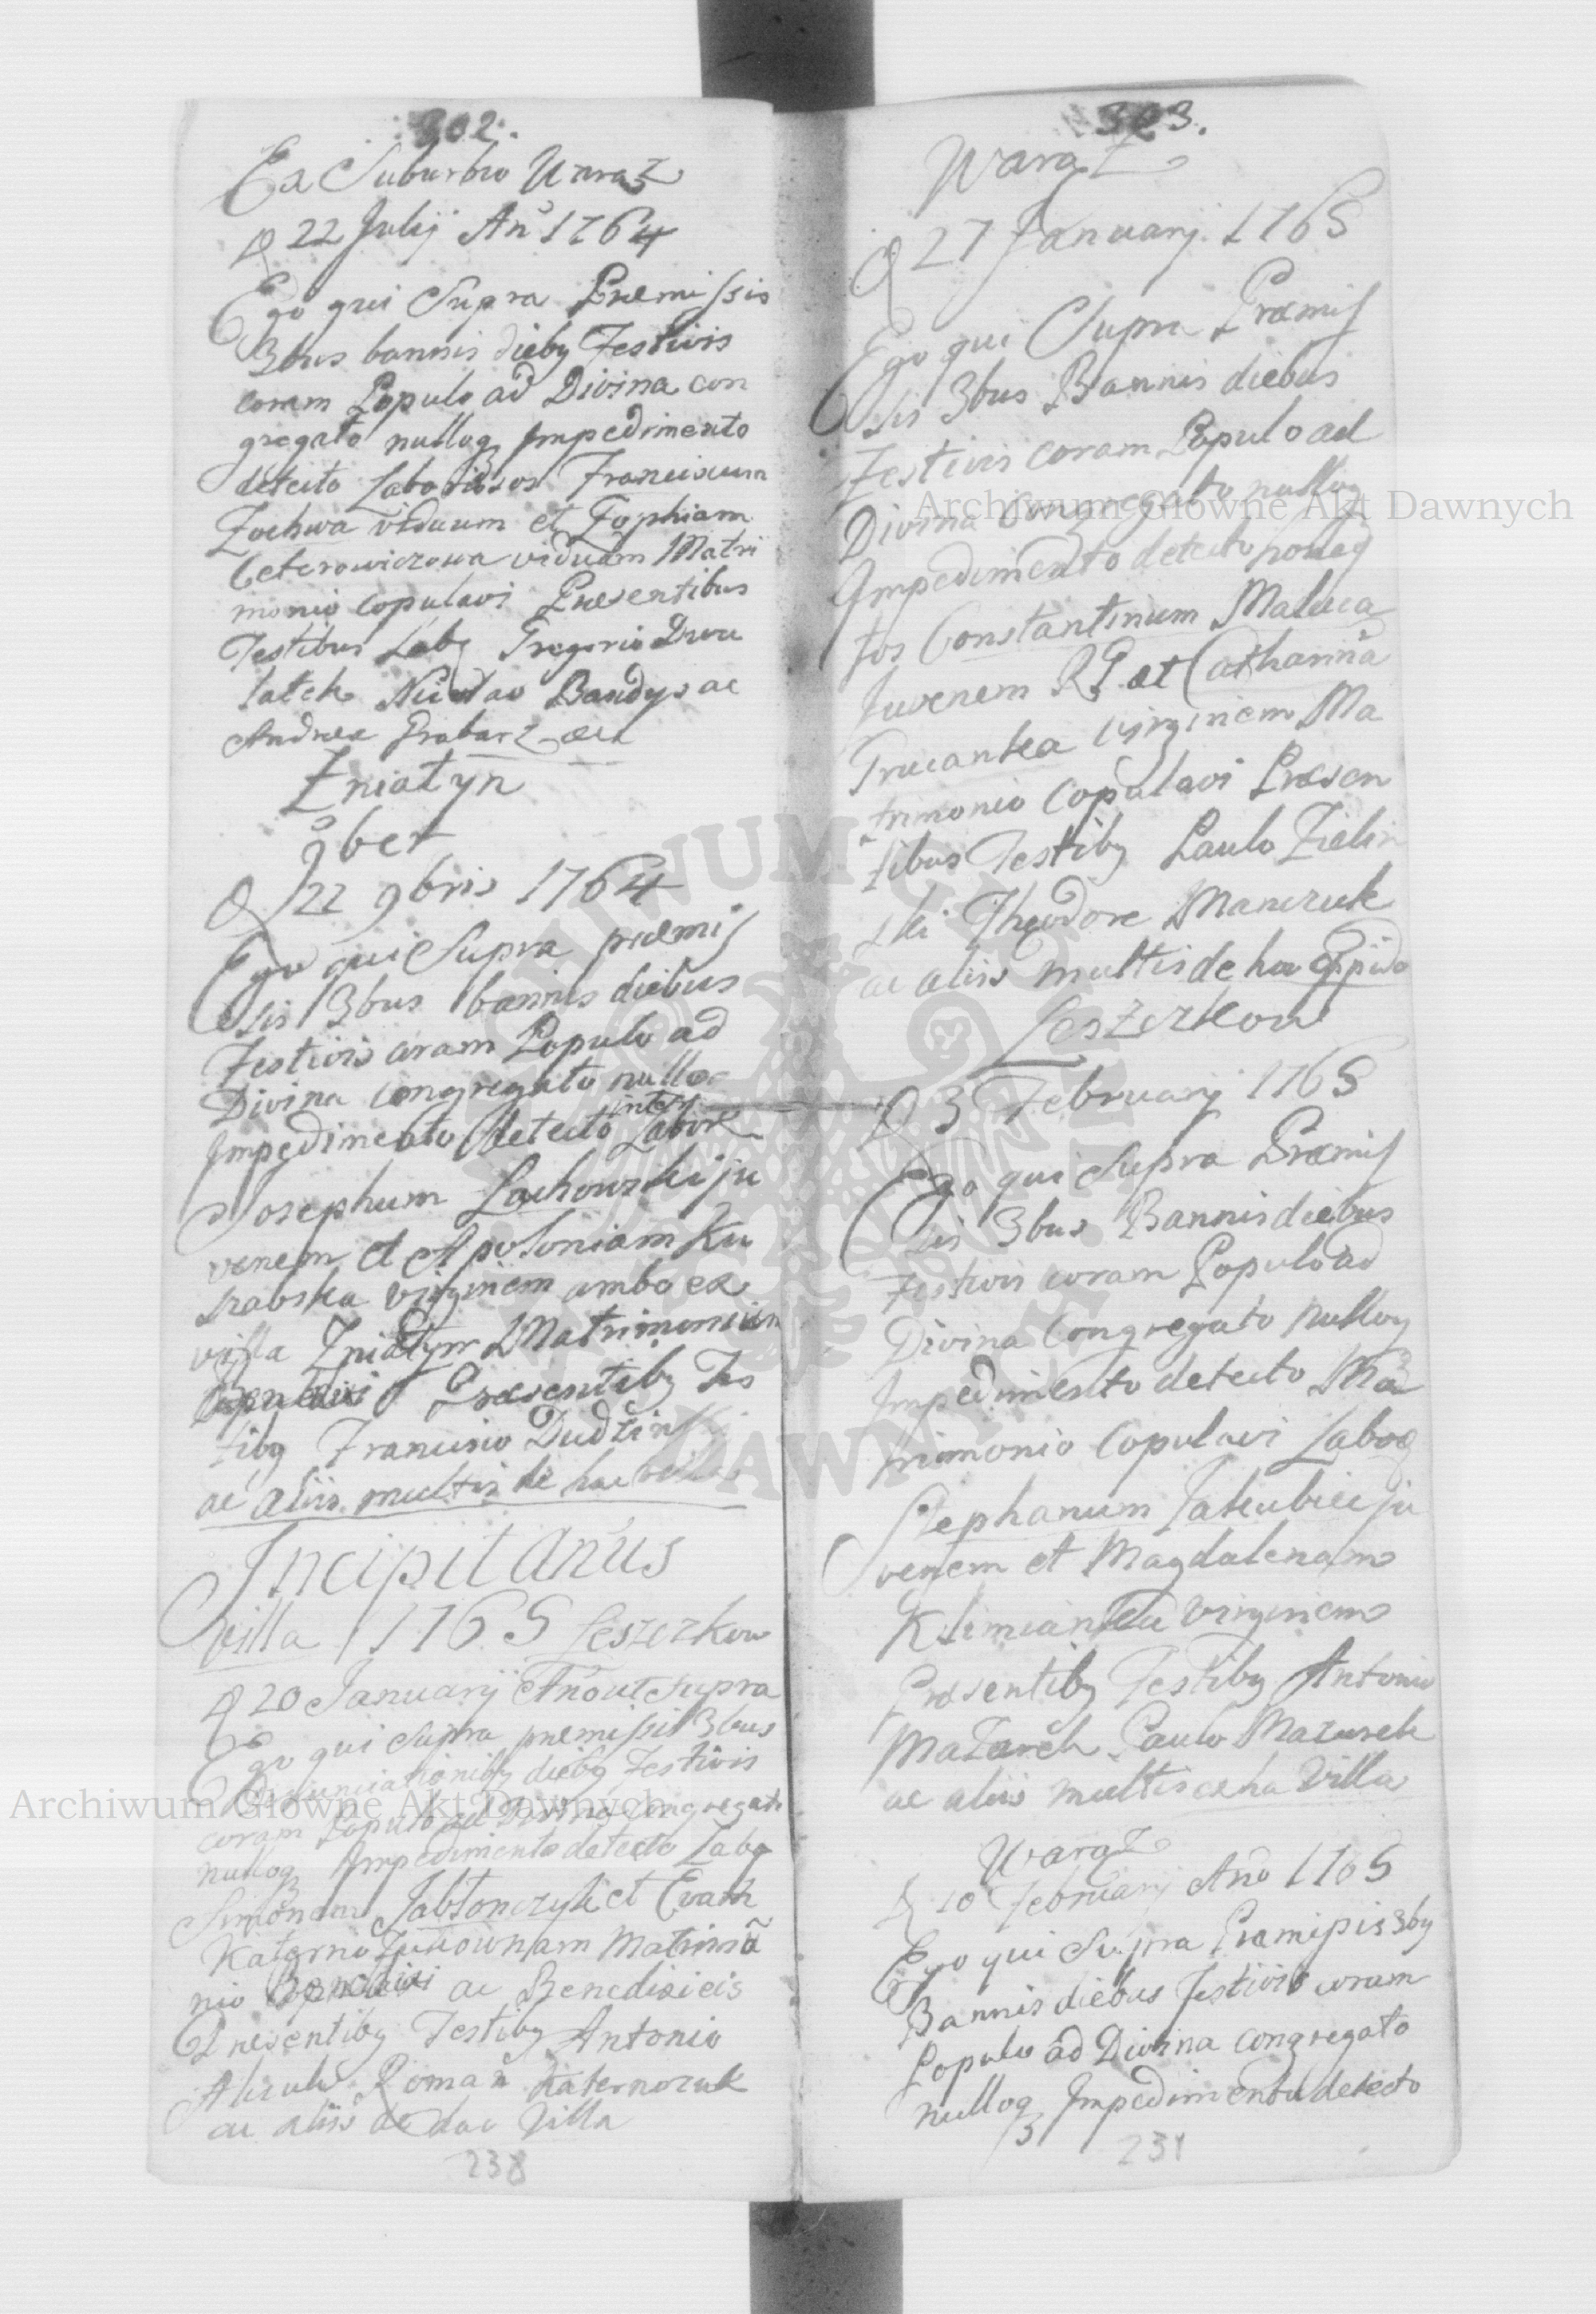 302.
Ex Suburbio Waraz
D 22 Julij An° 1764
Ego qui Supra Præmissis
3bus bannis dieby Festivis
coram Populo ad Divina con
gregato nulloq Impedimento
detecto Laboriosos Franciscum
Zochwa viduum et Zophiam
viduam Matri
monio copulavi Præsentibus
Testibus Labq Gregorio Dwu
latek Nicolao Bandys ac
Andrea Grabarz
Zniatyn
9ber
D 22 9bris 1764
Ego qui Supra præmis
sis 3bus bannis diebus
Festivis coram Populo ad
Divina congregato nulloq
Impedimento detecto inter Labor
Josephum Lachowski ju
venem et Apoloniam Ku
rabska virginem ambo ex
villa Zniatyn Matrimonium
Præsentiby Tes
tiby Francisco Dudzinski
ac aliis multis de hac villa
Incipit Anus
villa 1765 Leszczkow
D 20 Januarij Año ut Supra
Ego qui Supra præmissis 3bus
Denunciationiby dieby Festivis
coram Populo ad Divina congregato
nulloq Impedimento detecto Labq
Simonem Jabłonczyk et Evam
Matrimo
nio ac Benedixi eis
Præsentiby Testiby Antonio
Roman Katernozuk
ac aliis de hac Villa
238
303.
Waraz
D 27 Januarij 1765
Ego qui Supra Præmis
sis 3bus Bannis diebus
Festivis coram Populo ad
Divina congregato nulloq
Impedimento detecto hones
tos Constantinum Maluca
Juvenem RG et Catharinã
Trucanka virginem Ma
trimonio Copulavi Præsen
tibus Testiby Paulo Zielin
ski Theodore Manczuk
ac aliis multis de hoc Oppido
Leszczkow
D 3 Februarij 1765
Ego qui Supra Præmis
sis 3bus Bannis diebus
Festivis coram Populo ad
Divina Congregato nulloq
Impedimento detecto Ma
trimonio Copulavi Laboq
Stephanum Jakubiec ju
venem et Magdalenam
Klimianka Virginem
Præsentiby Testiby Antonio
Mazurek Paulo Mazurek
ac aliis multis ex ha Villa
Waraz
D 10 Februarij Año 1765
Ego qui Supra Præmissis 3by
Bannis diebus Festivis coram
Populo ad Divina congregato
nulloq Impedimento detecto
231
Archiwum Główne Akt Dawnych
Archiwum Główne Akt Dawnych
ARCHIWUM GŁÓWNE AKT DAWNYCH